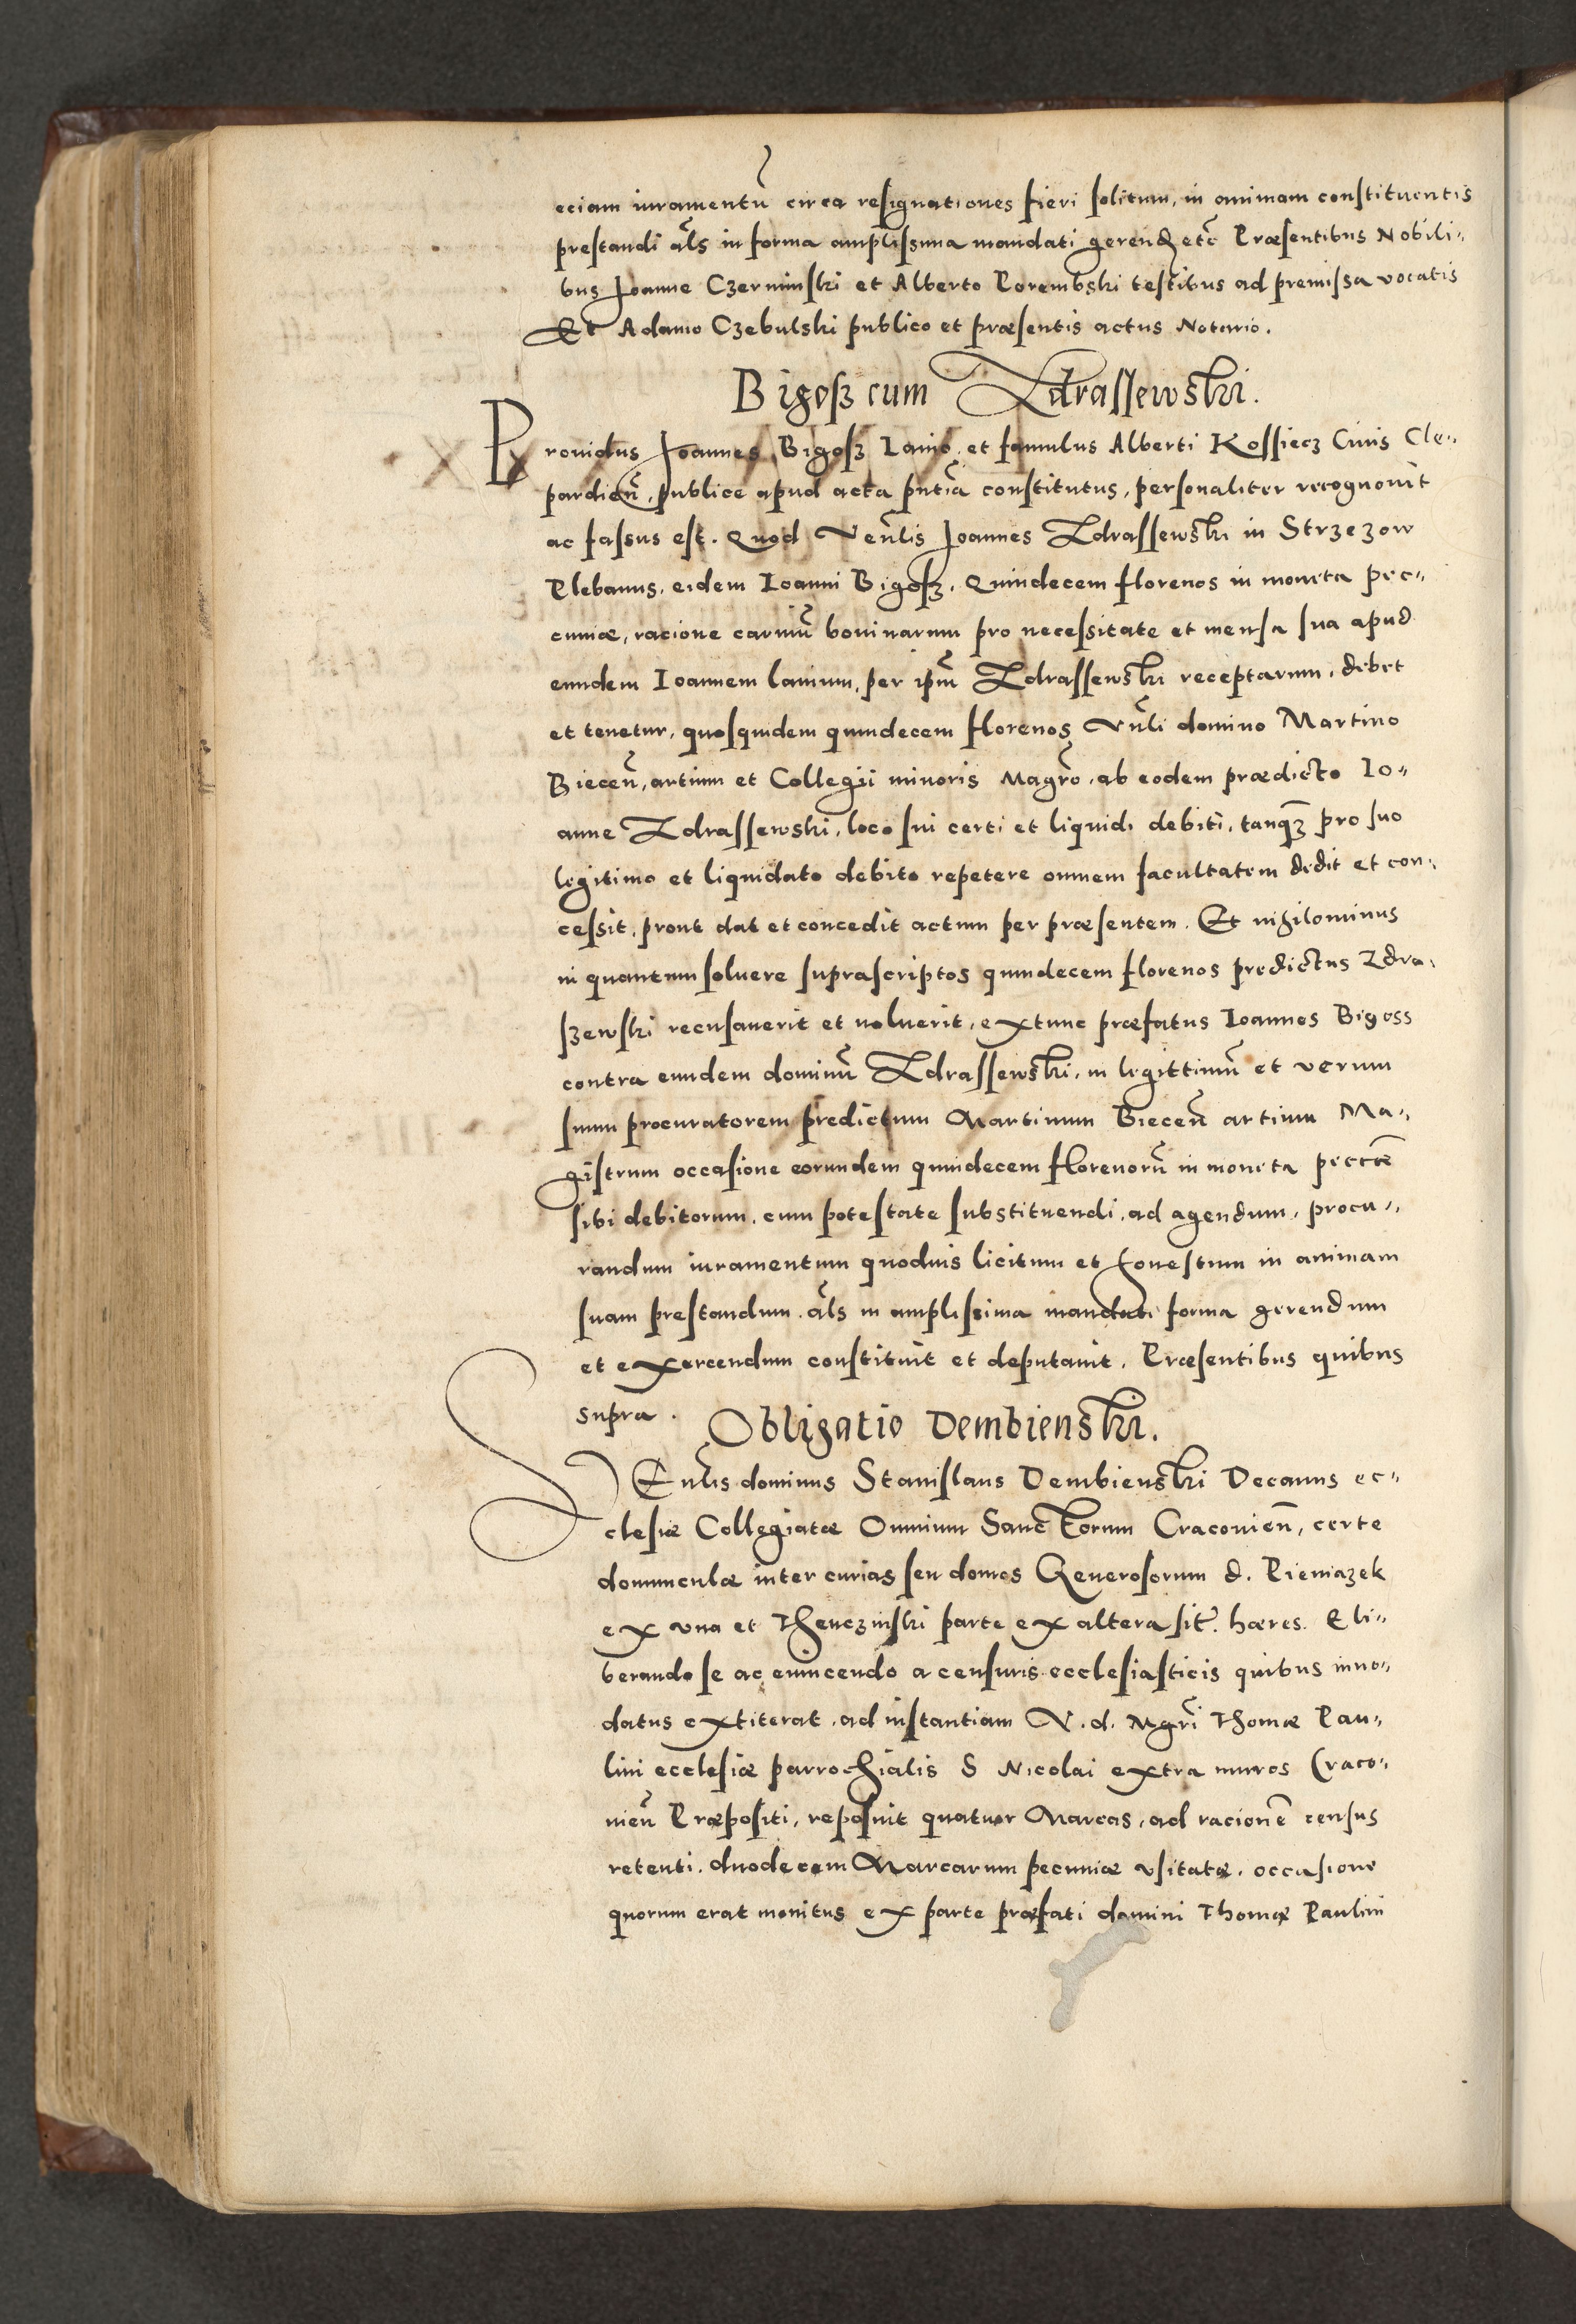 eciam iuramentũ circa resignationes fieri solitum, in animam constituentis
prestandi al̃s in forma amplissima mandati gerend etc̃ Præsentibus Nobili„
bus Joanne Czerminski et Alberto Porembski testibus ad premissa vocatis
Et Adamo Czebulski publico et præsentis actus Notario.
Bigosz cum Zdrassewski.
Prouidus Joannes Bigosz Lanio et famulus Alberti Kossiecz Ciuis Cle„
pardien̄, publice apud acta pñtia constitutus, personaliter recognouit
ac fassus est. Quod Ven̄lis Joannes Zdrassewski in Strzezow
Plebanus, eidem Ioanni Bigosz. Quindecem florenos in moneta pec„
cuniæ, racione carniũ bouinarum pro necessitate et mensa sua apud
eundem Ioannem lanium, per ip̃m Zdrassewski receptarum, debet
et tenetur, quosquidem quindecem florenos Vn̄li domino Martino
Biecen̄, artium et Collegii minoris Magr̃o, ab eodem prædicto Io„
anne Zdrassewski, loco sui certi et liquidi debiti, tanqꝫ pro suo
legitimo et liquidato debito repetere omnem facultatem dedit et con„
cessit, prout dat et concedit actum per præsentem. Et nihilominus
in quantum soluere suprascriptos quindecem florenos predictus Zdra„
szewski recusauerit et noluerit, extunc præfatus Ioannes Bigoss
contra eundem dominũ Zdrassewski, in legittimũ et verum
suum procuratorem predictum Martinum Biecen̄ artium Ma„
gistrum occasione eorundem quindecem florenorũ in moneta pecc̃æ
sibi debitorum, cum potestate substituendi, ad agendum, procu„
randum iuramentum quoduis licitum et honestum in animam
suam prestandum. al̃s in amplissima mandati forma gerendum
et exercendum constituit et deputauit. Præsentibus quibus
supra.
Obligatio Dembienski.
VEn̄lis dominus Stanislaus Dembienski Decanus ec„
clesiæ Collegiatæ Omnium Sanctorum Cracouien̄, certe
domunculæ inter curias seu domos Generosorum d. Pieniazek
ex vna et Thenczinski parte ex altera sit̃. hæres. Eli„
berando se ac euincendo a censuris ecclesiasticis quibus inno„
datus extiterat, ad instantiam V. d. Mgr̃i Thomæ Pau„
lini ecclesiæ parrochialis S Nicolai extra muros Craco„
uien̄ Præpositi, reposuit quatuor Marcas, ad racionẽ census
retenti. duodecem Marcarum pecuniæ vsitatæ, occasione
quorum erat monitus ex parte præfati domini Thomæ Paulini